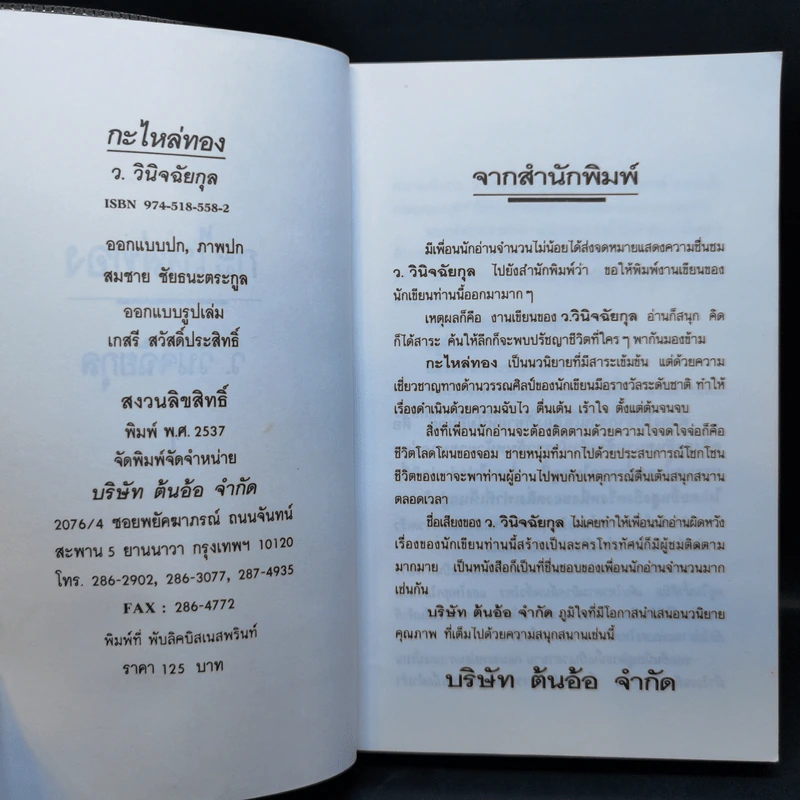 กะไหล่ทอง
ว. วินิจฉัยกุล
ISBN 974-518-558-2
ออกแบบปก, ภาพปก
สมชาย ชัยธนะตระกูล
ออกแบบรูปเล่ม
เกสรี สวัสดิ์ประสิทธิ์
สงวนลิขสิทธิ์
พิมพ์ พ.ศ. 2537
จัดพิมพ์จัดจำหน่าย
บริษัท ต้นอ้อ จำกัด
2076/4 ซอยพยัคฆาภรณ์ ถนนจันทน์
สะพาน 5 ยานนาวา กรุงเทพฯ 10120
โทร. 286-2902, 286-3077, 287-4935
FAX : 286-4772
พิมพ์ที่ พับลิคบิสเนสพรินท์
ราคา 125 บาท
จากสำนักพิมพ์
มีเพื่อนนักอ่านจำนวนไม่น้อยได้ส่งจดหมายแสดงความชื่นชม
ว. วินิจฉัยกุล ไปยังสำนักพิมพ์ว่า ขอให้พิมพ์งานเขียนของ
นักเขียนท่านนี้ออกมามาก ๆ
เหตุผลก็คือ งานเขียนของ ว.วินิจฉัยกุล อ่านก็สนุก คิด
ก็ได้สาระ ค้นให้ลึกก็จะพบปรัชญาชีวิตที่ใคร ๆ พากันมองข้าม
กะไหล่ทอง เป็นนวนิยายที่มีสาระเข้มข้น แต่ด้วยความ
เชี่ยวชาญทางด้านวรรณศิลป์ของนักเขียนมือรางวัลระดับชาติ ทำให้
เรื่องดำเนินด้วยความฉับไว ตื่นเต้น เร้าใจ ตั้งแต่ต้นจนจบ
สิ่งที่เพื่อนนักอ่านจะต้องติดตามด้วยความใจจดใจจ่อก็คือ
ชีวิตโลดโผนของจอม ชายหนุ่มที่มากไปด้วยประสบการณ์โชกโชน
ชีวิตของเขาจะพาท่านผู้อ่านไปพบกับเหตุการณ์ตื่นเต้นสนุกสนาน
ตลอดเวลา
ชื่อเสียงของ ว. วินิจฉัยกุล ไม่เคยทำให้เพื่อนนักอ่านผิดหวัง
เรื่องของนักเขียนท่านนี้สร้างเป็นละครโทรทัศน์ก็มีผู้ชมติดตาม
มากมาย เป็นหนังสือก็เป็นที่ชื่นชอบของเพื่อนนักอ่านจำนวนมาก
เช่นกัน
บริษัท ต้นอ้อ จำกัด ภูมิใจที่มีโอกาสนำเสนอนวนิยาย
คุณภาพ ที่เต็มไปด้วยความสนุกสนานเช่นนี้
บริษัท ต้นอ้อ จำกัด